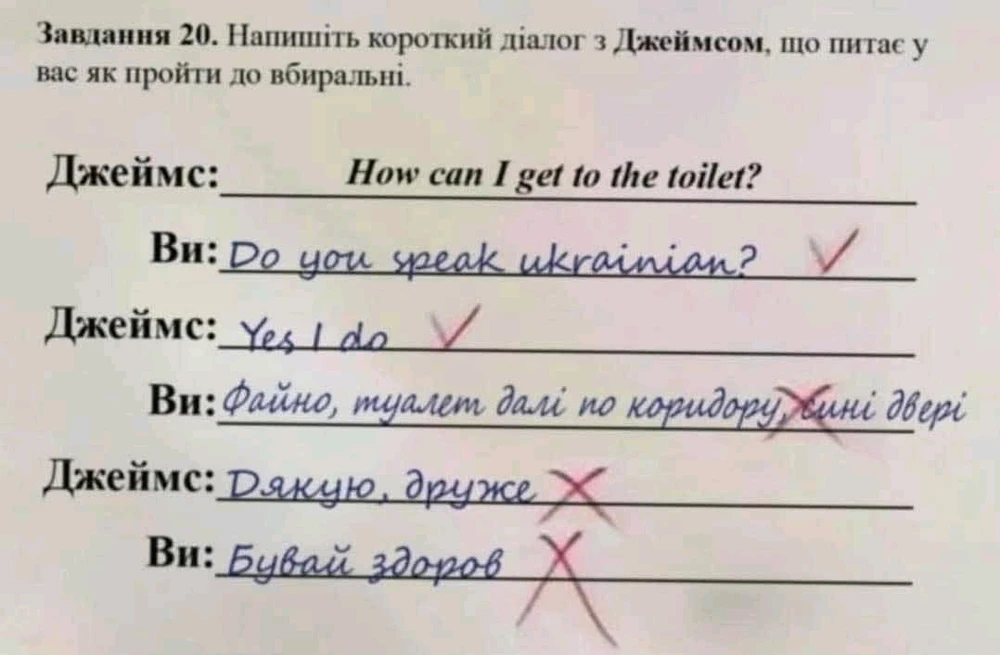 Завдання 20. Напишіть короткий діалог з Джеймсом, що питає у
вас як пройти до вбиральні.
Джеймс: How can I get to the toilet?
Ви: Do you speak ukrainian?
Джеймс: Yes I do
Ви: Файно, туалет далі по коридору, сині двері
Джеймс: Дякую, друже
Ви: Бувай здоров